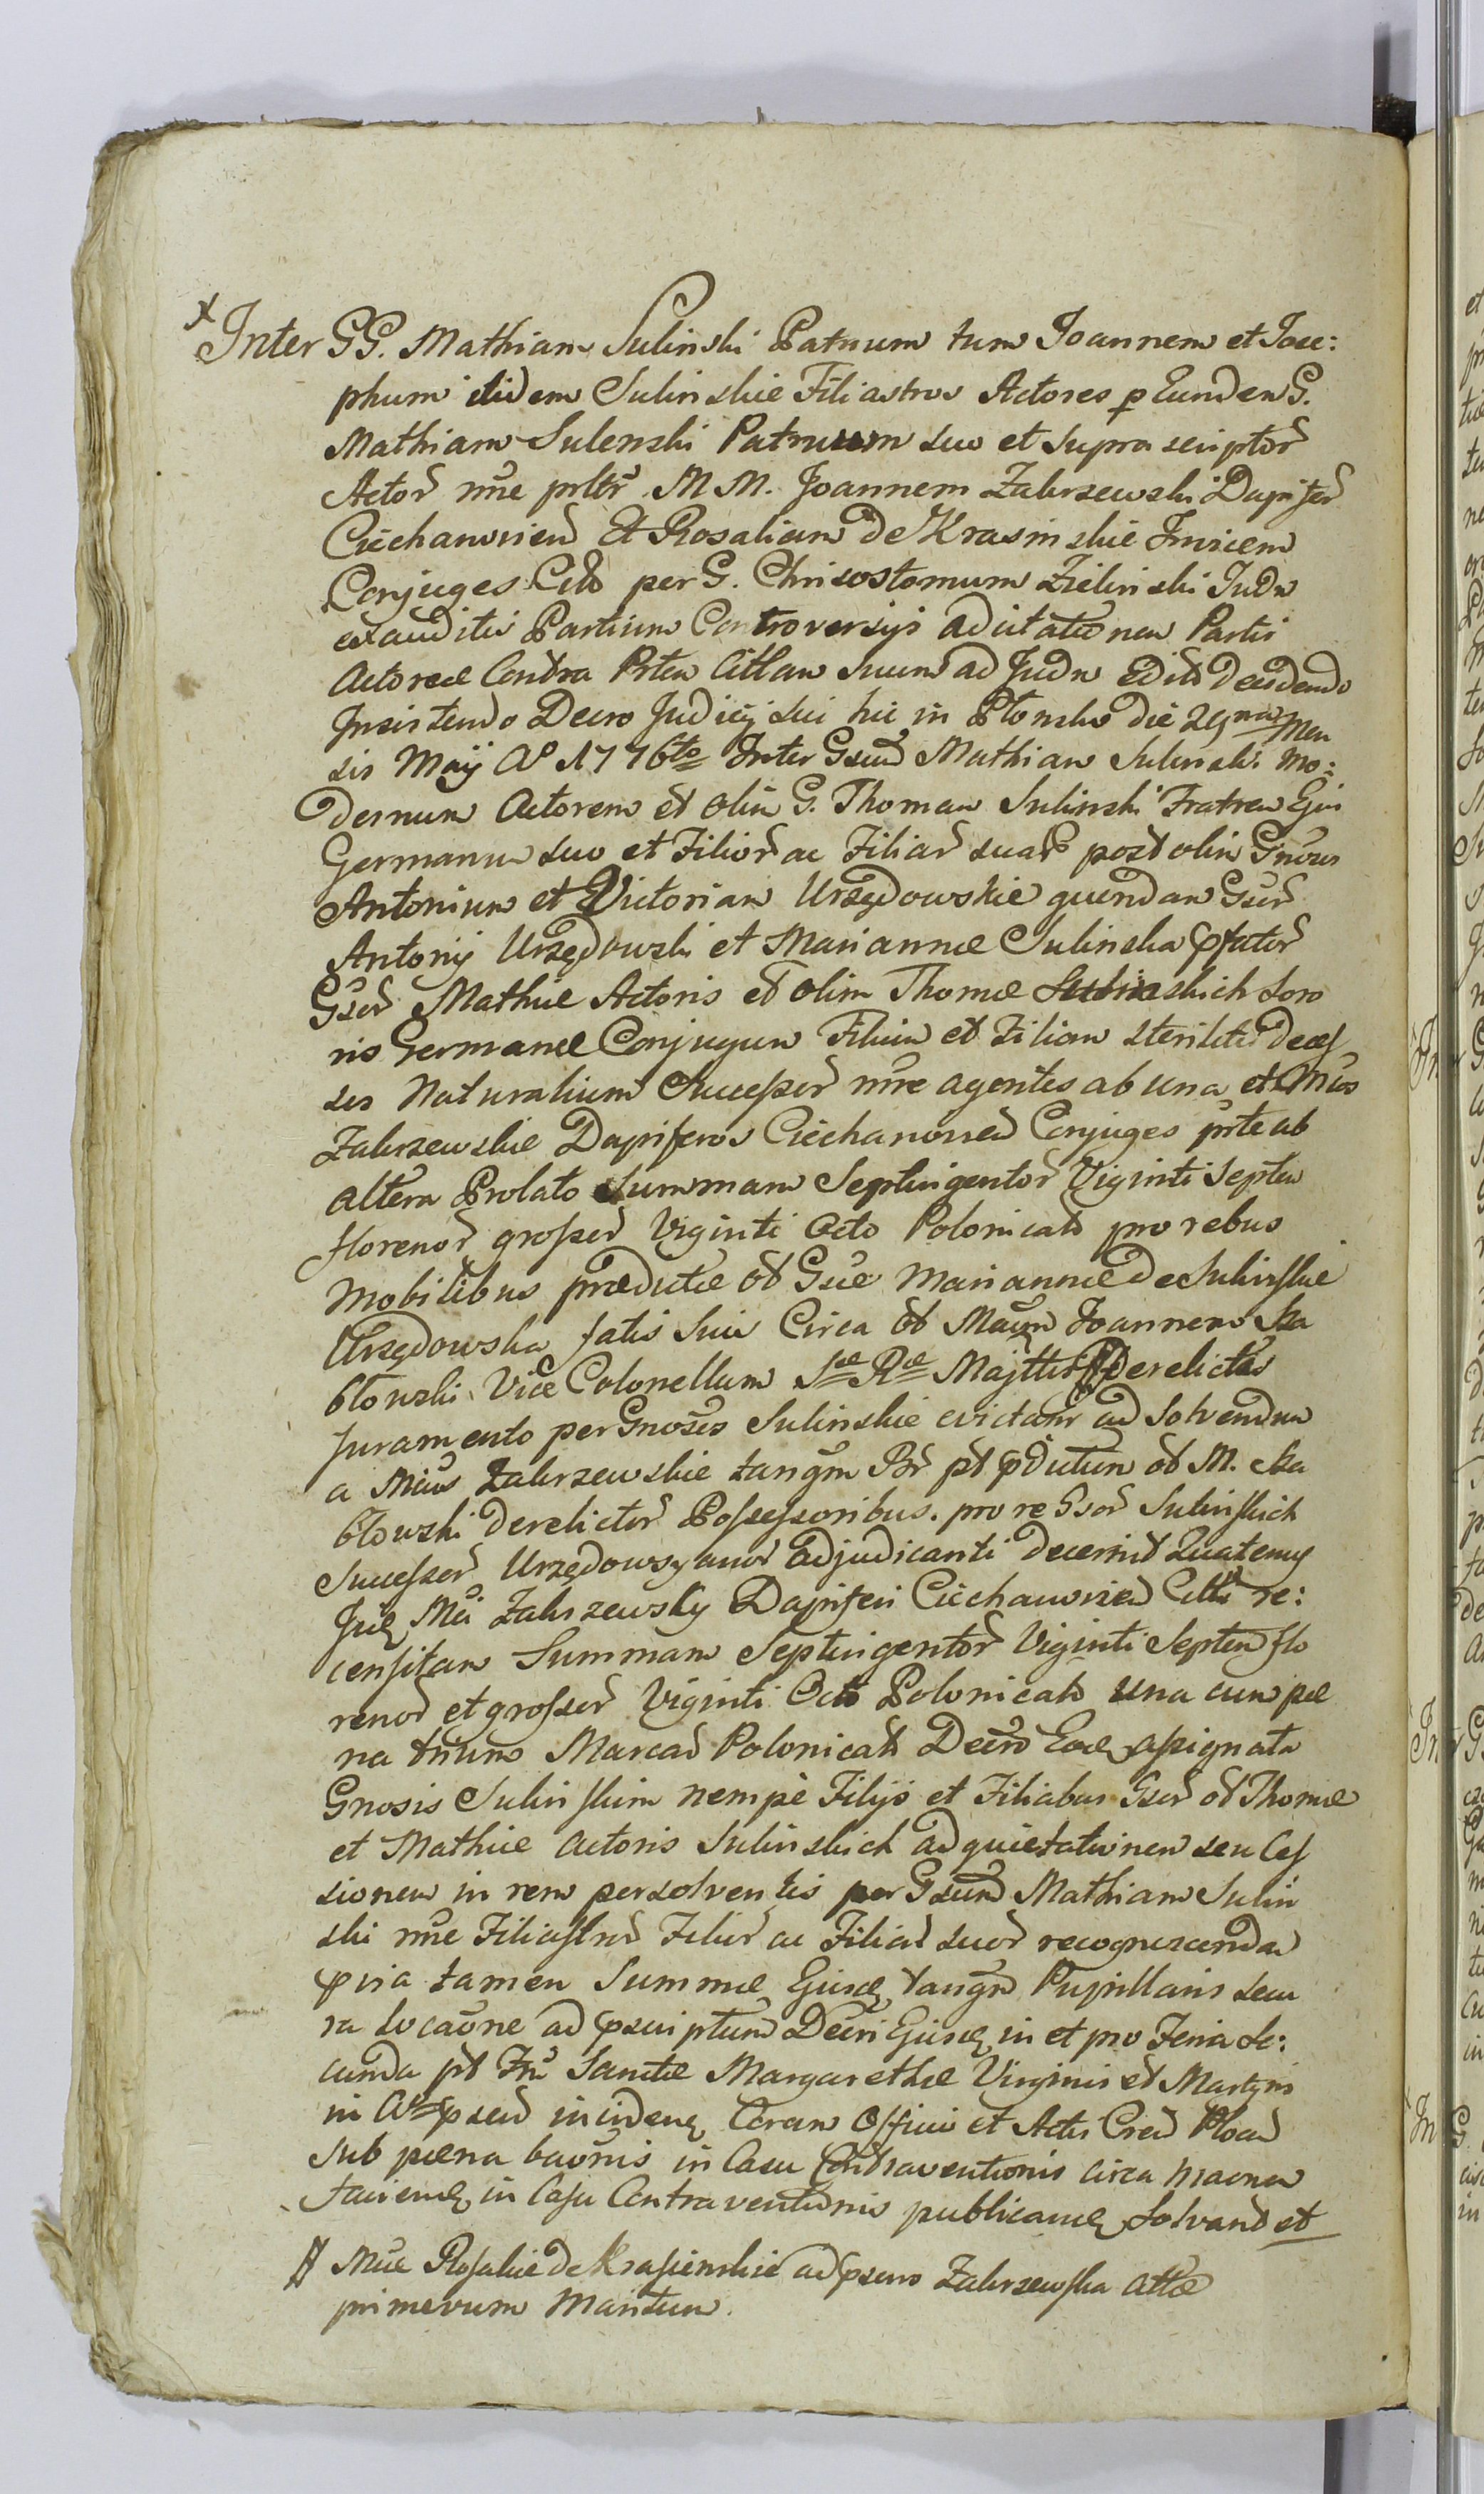 Inter GG. Mathiam Sulinski Patruum tum Joannem et Jose:
phum itidem Sulinskie Filiastros Actores p Eundem G.
Mathiam Sulenski Patruum suo et supra scriptor
Actor nñe M M. Joannem Zakrzewski Dapifer
Ciechanovien Et Rosaliam de Krasinskie Invicem
Conjuges per G. Chrisostomum Zielinski Judm
exauditis Partium Controversijs ad citationem Partis
Actoreæ Contra Prtem Citlam suum ad Judm Decidendo
Insistendo Decro Judicij sui hic in Plonsko die Men
sis Maij Ao 1776to Inter Gsum Mathiam Sulinski Mo:
dernum Actorem et olim G. Thomam Sulinski Fratrem Ejus
Germanum suo et Filior ac Filiar suar post olim
Antonium et Victoriam Urzędowskie quendam Gser
Antonij Urzędowski et Mariannæ Sulinska
Gser Mathiæ Actoris et olim Thomæ Sulinskich Soro
ris Germanæ Conjugum Filium et Filiam steriliter deces
ses Naturalium Successor nñe agentes ab una et Mños
Zakrzewskie Dapiferos Ciechanovien Conjuges prte ab
altera Prolato Summam Septingentor Viginti Septem
florenor grosser Viginti Octo Polonical pro rebus
Mobilibus prædictæ ol Gsæ Mariannæ de Sulinskie
Urzędowska fatis Circa ol Joannem Ska
błowski Vice Colonellum Sæ Ræ Majttis derelictis
Juramento per Gnoses Sulinskie ad Solvendum
a Zakrzewskie tanqm ol M. Ska
błowski derelictor Possessoribus. pro re Gsor Sulinskich
Successor adjudicanti decernit Quatenus
Zakrzewski Dapiferi Ciechanovien re:
censitam Summam Septingentor Viginti Septem flo
renor et grosser Viginti Octo Polonical una cum pæ
na trium Marcar Polonical Decro assignata
Gnosis Sulinskim nempe Filijs et Filiabus Gser ol Thomæ
et Mathiæ Actoris Sulinskich ad quietationem seu Ces
sionem in rem persolventis per Gsum Mathiam Sulin
ski nñe Filiastror Filior ac Filiar suor recognoscendam
tamen Summæ tanqm Pupillaris secu
ra locaõne ad Decri in et pro Feria Se:
cunda Sanctæ Margarethæ Virginis et Martyris
in Coram Officio et Actis
sub pæna in Casu Contraventionis circa
in Casu Contraventionis Solvant et
Rosaliæ de Krasienskie Zakrzewska
primevum Maritum.